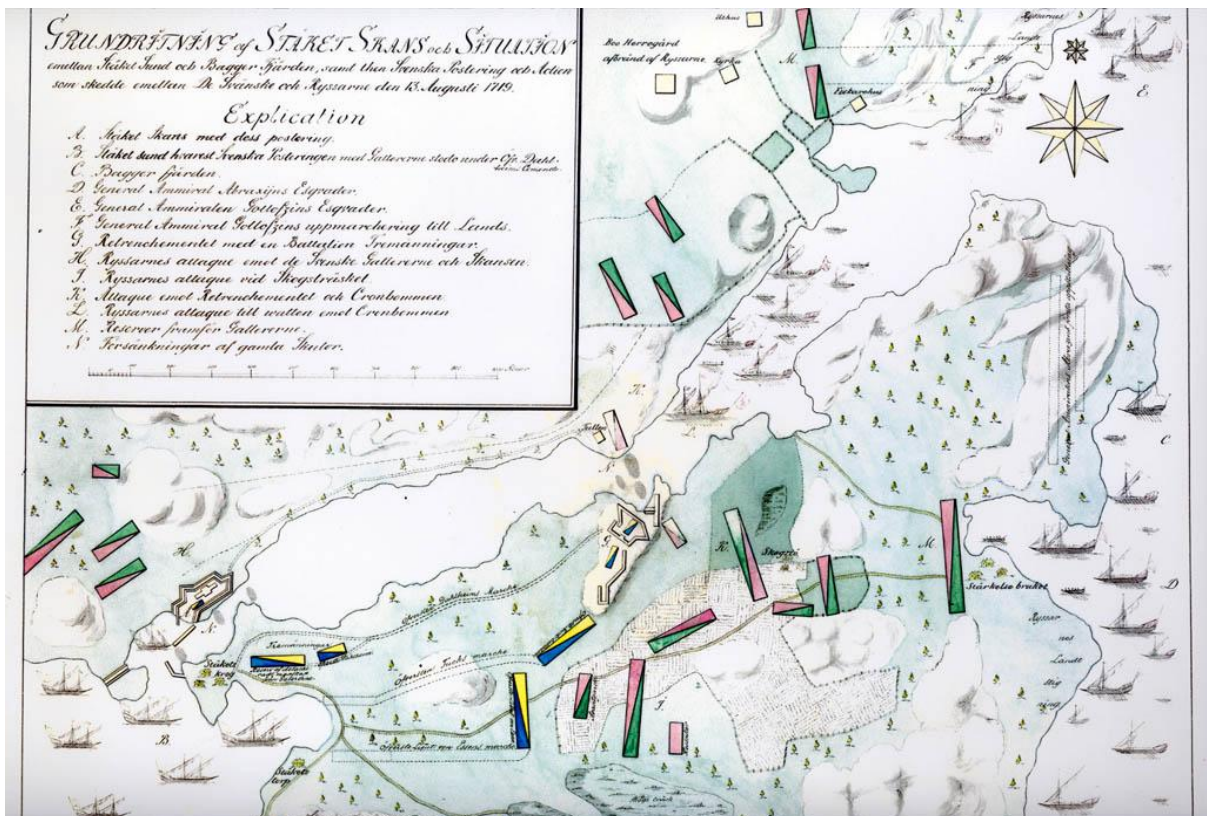 GRUNDRITNING af STÄKET SKANS och SITUATION
emellan Stäket Sund och Bagger Fjärden, samt then Svenska Postering och Action
som skedde emellan De Svänske och Ryssarne den 13. Augusti 1719.
Explication
A. Stäket Skans med dess postering.
B. Stäket sund hvarest Svenska Posteringen med Gallererne stodo under Öfv.
C. Bagger fjärden.
D. General Ammiral Abraxijns Esqvader.
E. General Ammiralen Gollofzins Esqvader.
F. General Ammiral Gollofzins uppmarchering till Lands.
G. Retrenchementet med en Battalion Tremänningar.
H. Ryssarnes attaque emot de Svenske Gallererne och Skansen.
J. Ryssarnes attaque vid Skogsträsket.
K. Attaque emot Retrenchementet och Cronbommen
L. Ryssarnes attaque till watten emot Cronbommen
M. Reserver framför Gallererne.
N. Försänkningar af gamla Skutor.
Boo Herregård
afbränd af Ryssarne
Kyrka
M.
Fiskarehus
Ryssarnes
Landt
stig
ning
F
E.
K.
L.
N.
C
H.
G.
K.
Skogstö
M.
D
Stärkelse bruket
Ryssar
nes
Landt
stig
ning
N.
Stäkets
krog
Tremänningar
Öfversten Dahlheims Marche
Öfversten Fuchs marche
B.
J.
Stäkets
torp